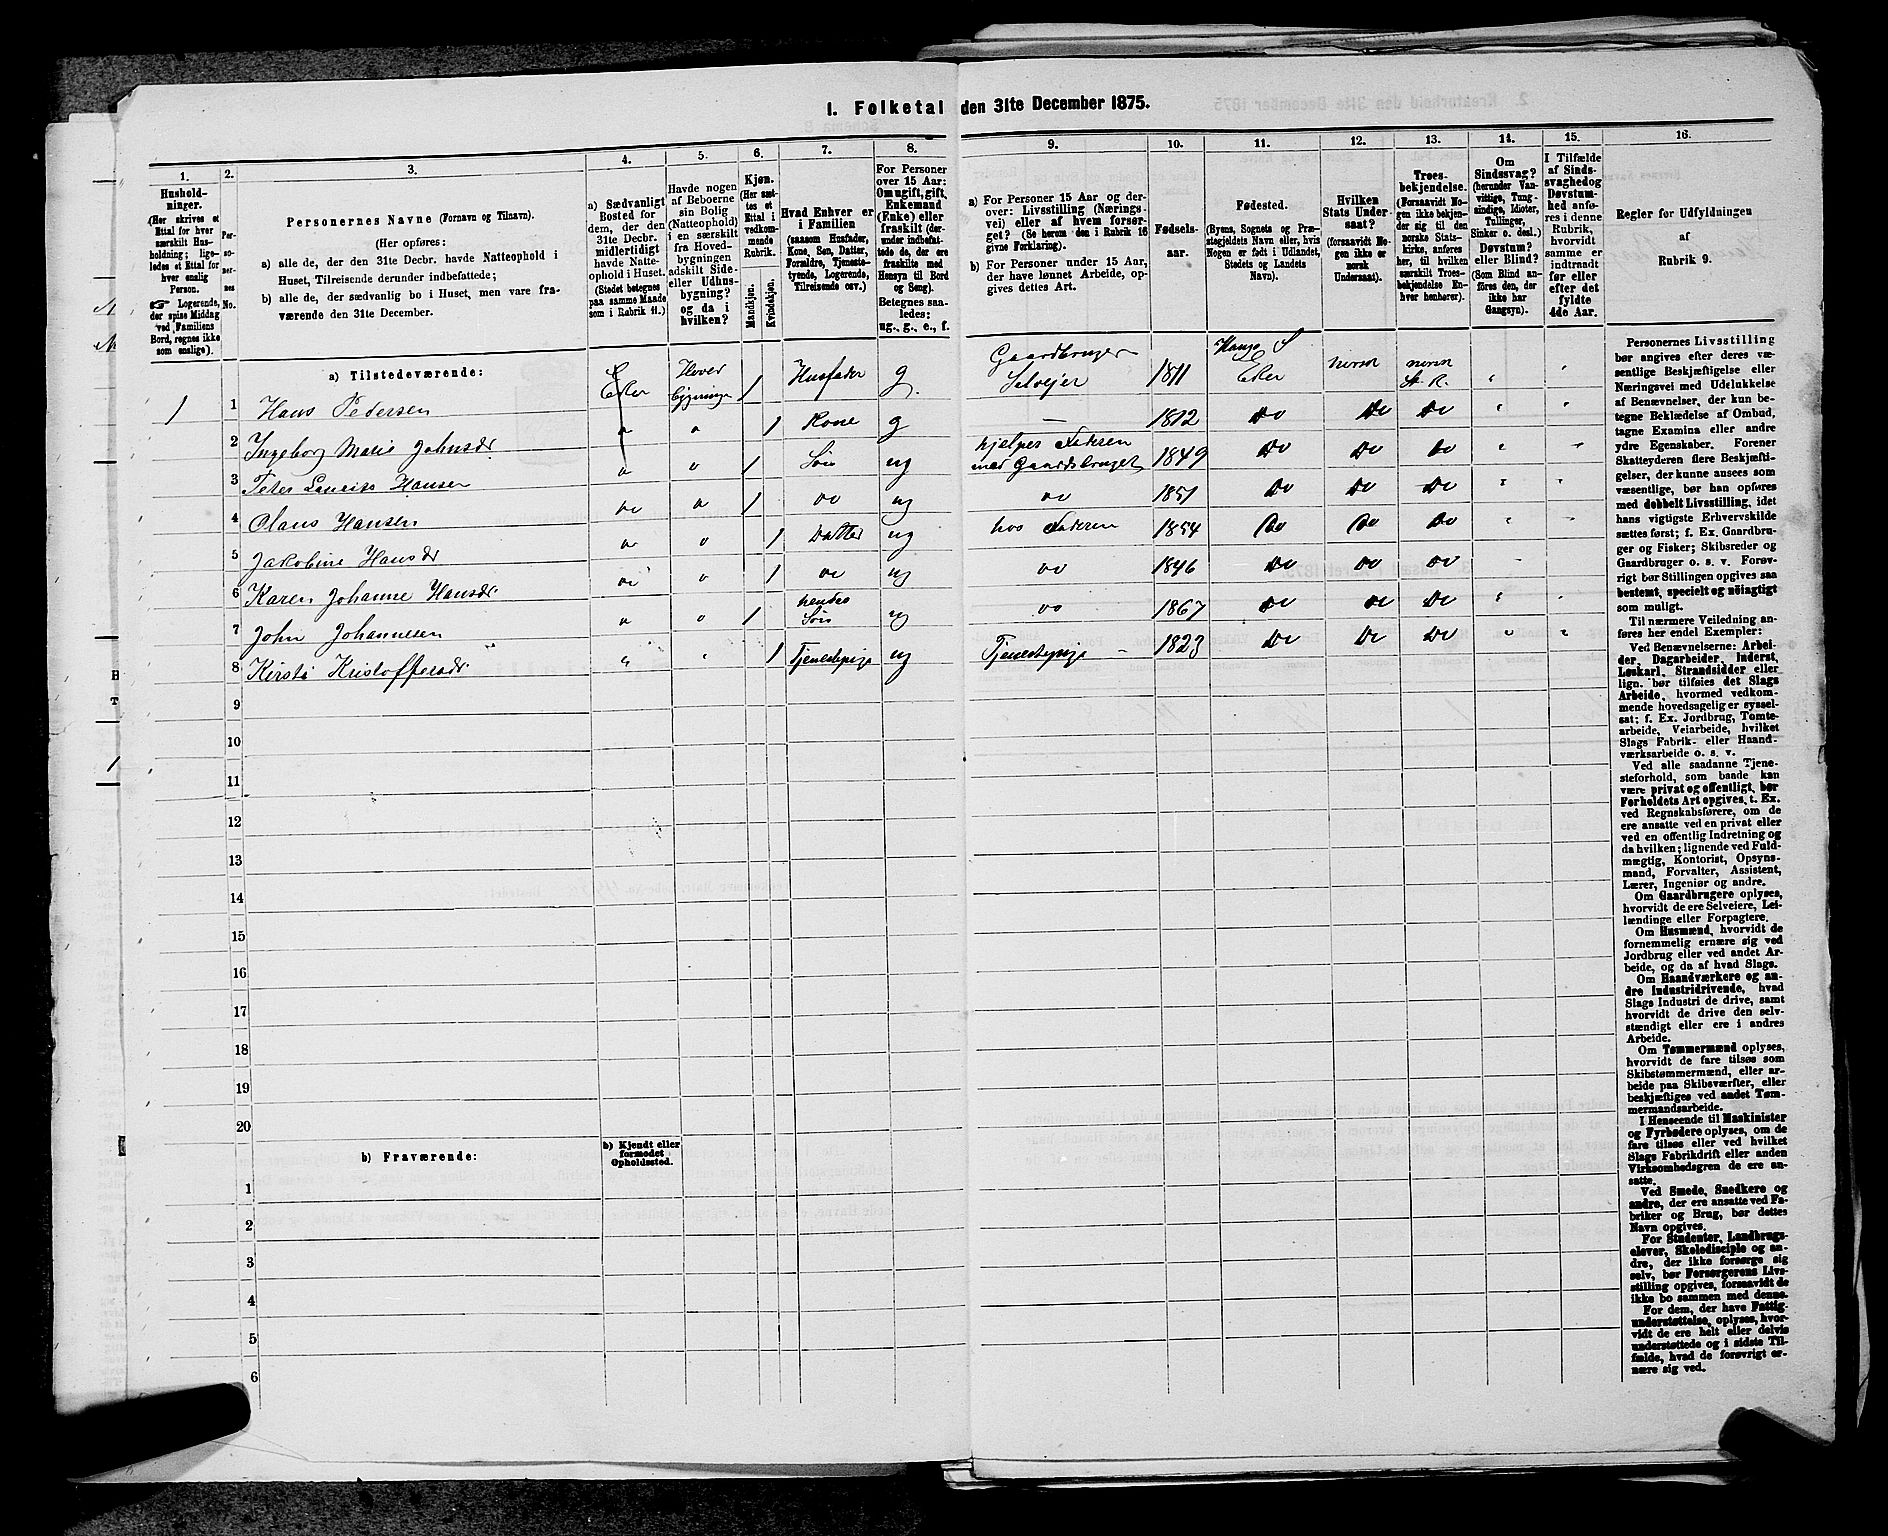 1. Folketal den 31te December 1875.
1. 2. 3. 4. 5. 6. 7. 8. 9. 10. 11. 12. 13. 14. 15. 16.
Hushold-
ninger.
(Her skrives et
Ettal for hver
særskilt Hus-
holdning; lige-
ledes et Ettal for
hver enslig
Person.
☞ Logerende,
der spise Middag
ved Familiens
Bord, regnes ikke
som enslige).
Per-
so-
ner-
nes
No.
Personernes Navne (Fornavn og Tilnavn).
(Her opføres:
a) alle de, der den 31te Decbr. havde Natteophold i
Huset, Tilreisende derunder indbefattede;
b) alle de, der sædvanlig bo i Huset, men vare fra-
værende den 31te December.
a) Sædvanligt
Bosted for
dem, der den
31te Decbr.
midlertidigt
havde Natte-
ophold i Huset.
(Stedet betegnes
paa samme Maade
som i Rubrik 11.)
Havde nogen
af Beboerne
sin Bolig
(Natteophold)
i en særskilt
fra Hoved-
bygningen
adskilt Side-
eller Udhus-
bygning?
og da i
hvilken?
Kjøn.
(Her sæt-
tes et
Ettal i
vedkom-
mende
Rubrik.
Mandkjøn.
Kvindekjøn.
Hvad Enhver er
i Familien
(saasom Husfader,
Kone, Søn, Datter,
Forældre, Tjeneste-
tyende, Logerende,
Tilreisende osv.)
For Personer
over 15 Aar:
Om ugift, gift,
Enkemand
(Enke) eller
fraskilt (der-
under indbefat-
tede de, der
ere fraskilte med
Hensyn til Bord
og Seng).
Betegnes saa-
ledes:
ug., g., e., f.
a) For Personer 15 Aar og der-
over: Livsstilling (Nærings-
vei) eller af hvem forsør-
get? (Se herom den i Rubrik 16
givne Forklaring).
b) For Personer under 15 Aar,
der have lønnet Arbeide, op-
gives dettes Art.
Fødsels-
aar.
Fødested.
(Byens, Sognets og Præ-
stegjeldets Navn eller, hvis
Nogen er født i Udlandet,
Stedets og Landets
Navn).
Hvilken
Stats Under-
saat?
(forsaavidt No-
gen ikke er
norsk
Undersaat).
Troes-
bekjendelse.
(Forsaavidt No-
gen ikke bekjen-
der sig til den
norske Stats-
kirke, anføres
her, til hvilken
særskilt Troes-
bekjendelse En-
hver henhører).
Om
Sindssvag?
(herunder Van-
vittige, Tung-
sindige, Idioter,
Tullinger,
Sinker o. desl.)
Døvstum?
eller Blind?
(Som Blind an-
føres den, der
ikke har
Gangsyn).
I Tilfælde
af Sinds-
svaghed og
Døvstum-
hed anfø-
res i denne
Rubrik,
hvorvidt
samme er
indtraadt
før eller
efter det
fyldte
4de Aar.
Regler for Udfyldningen
af
Rubrik 9.
a) Tilstedeværende:
1 1 Hans Pedersen Eker Hoved bygningen 1 Husfader g. Gaardbruger Selvejer 1811 Haugs S Eker norsk norsk St. K. " "
2 Ingeborg Marie Johnsdr " " 1 Kone g — 1812 Do Do Do " "
3 Peter Laurits Hansen " " 1 Søn ug hjelper Faderen med Gaardsbruget 1849 Do Do Do " "
4 Olaus Hansen " " 1 do ug do 1851 Do Do Do " "
5 Jakobine Hansdr " " 1 Datter ug hos Faderen 1854 Do Do Do " "
6 Karen Johanne Hansdr " " 1 do ug do 1846 Do Do Do "
7 John Johannesen " " 1 hendes Søn ug do 1867 Do Do Do " "
8 Kirsti Kristoffersdr " " 1 Tjenestepige ug Tjenestepige 1823 Do Do Do " "
9
10
11
12
13
14
15
16
17
18
19
20
b) Fraværende:
b) Kjendt eller
formodet
Opholdssted.
1
2
3
4
5
6
Personernes Livsstilling
bør angives efter deres væ-
sentlige Beskjæftigelse eller
Næringsvei med Udelukkelse
af Benævnelser, der kun be-
tegne Beklædelse af Ombud,
tagne Examina eller andre
ydre Egenskaber. Forener
Skatteyderen flere Beskjæfti-
gelser, der kunne ansees som
væsentlige, bør han opføres
med dobbelt Livsstilling, idet
hans vigtigste Erhvervskilde
sættes først; f. Ex. Gaardbru-
ger og Fisker; Skibsreder og
Gaardbruger o. s. v. Forøv-
rigt bør Stillingen opgives saa
bestemt, specielt og nøiagtigt
som muligt.
Til nærmere Veiledning an-
føres her endel Exempler:
Ved Benævnelserne: Arbei-
der, Dagarbeider, Inderst,
Løskarl, Strandsidder eller
lign. bør tilføies det Slags
Arbeide, hvormed vedkom-
mende hovedsagelig er syssel-
sat; f. Ex. Jordbrug, Tomte-
arbeide, Veiarbeide, hvilket
Slags Fabrik- eller Haand-
værksarbeide o. s. v.
Ved alle saadanne Tjene-
steforhold, som baade kan
være privat og offentligt, bør
Forholdets Art opgives, t. Ex.
ved Regnskabsførere, om de
ere ansatte ved en privat eller
ved en offentlig Indretning og
da hvilken; lignende ved Fuld-
mægtig, Kontorist, Opsyns-
mand, Forvalter, Assistent,
Lærer, Ingeniør og andre.
Om Gaardbrugere oplyses,
hvorvidt de ere Selveiere, Lei-
lændinge eller Forpagtere.
Om Husmænd, hvorvidt de
fornemmelig ernære sig ved
Jordbrug eller ved andet Ar-
beide, og da af hvad Slags.
Om Haandværkere og an-
dre Industridrivende, hvad
Slags Industri de drive, samt
hvorvidt de drive den selv-
stændigt eller ere i andres
Arbeide.
Om Tømmermænd oplyses,
hvorvidt de fare tilsøs som
Skibstømmermænd, eller ar-
beide paa Skibsværfter, eller
beskjæftiges ved andet Tøm-
mermandsarbeide.
I Henseende til Maskinister
og Fyrbødere oplyses, om de
fare tilsøs eller ved hvilket
Slags Fabrikdrift eller anden
Virksomhedsgren de ere an-
satte.
Ved Smede, Snedkere og
andre, der ere ansatte ved Fa-
briker og Brug, bør dettes
Navn opgives.
For Studenter, Landbrugs-
elever, Skoledisciple og an-
dre, der ikke forsørge sig
selv, bør Forsørgerens Livs-
stilling opgives, forsaavidt de
ikke bo sammen med denne.
For dem, der have Fattig-
understøttelse, oplyses, hvor-
vidt de ere helt eller delvis
understøttede og i sidste Til-
fælde, hvad de forøvrigt er-
nære sig ved.